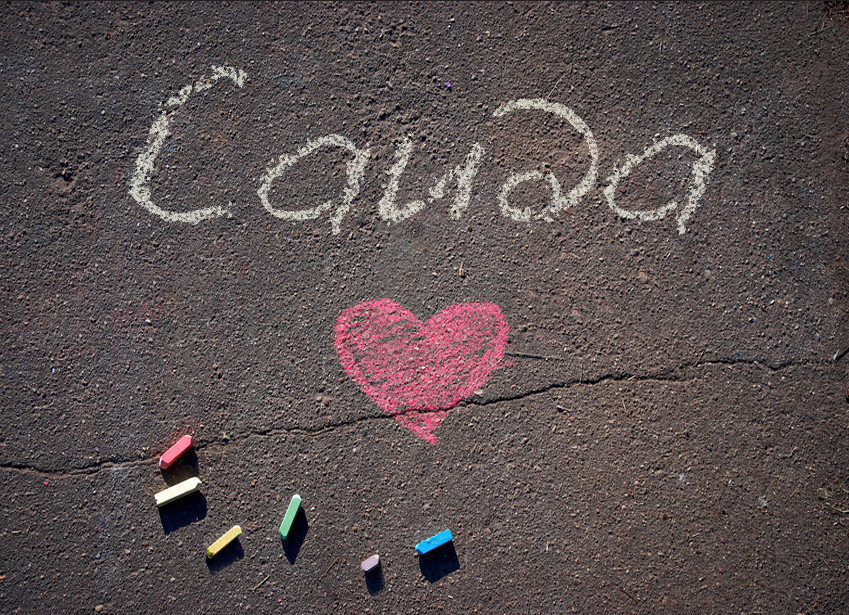 Саида